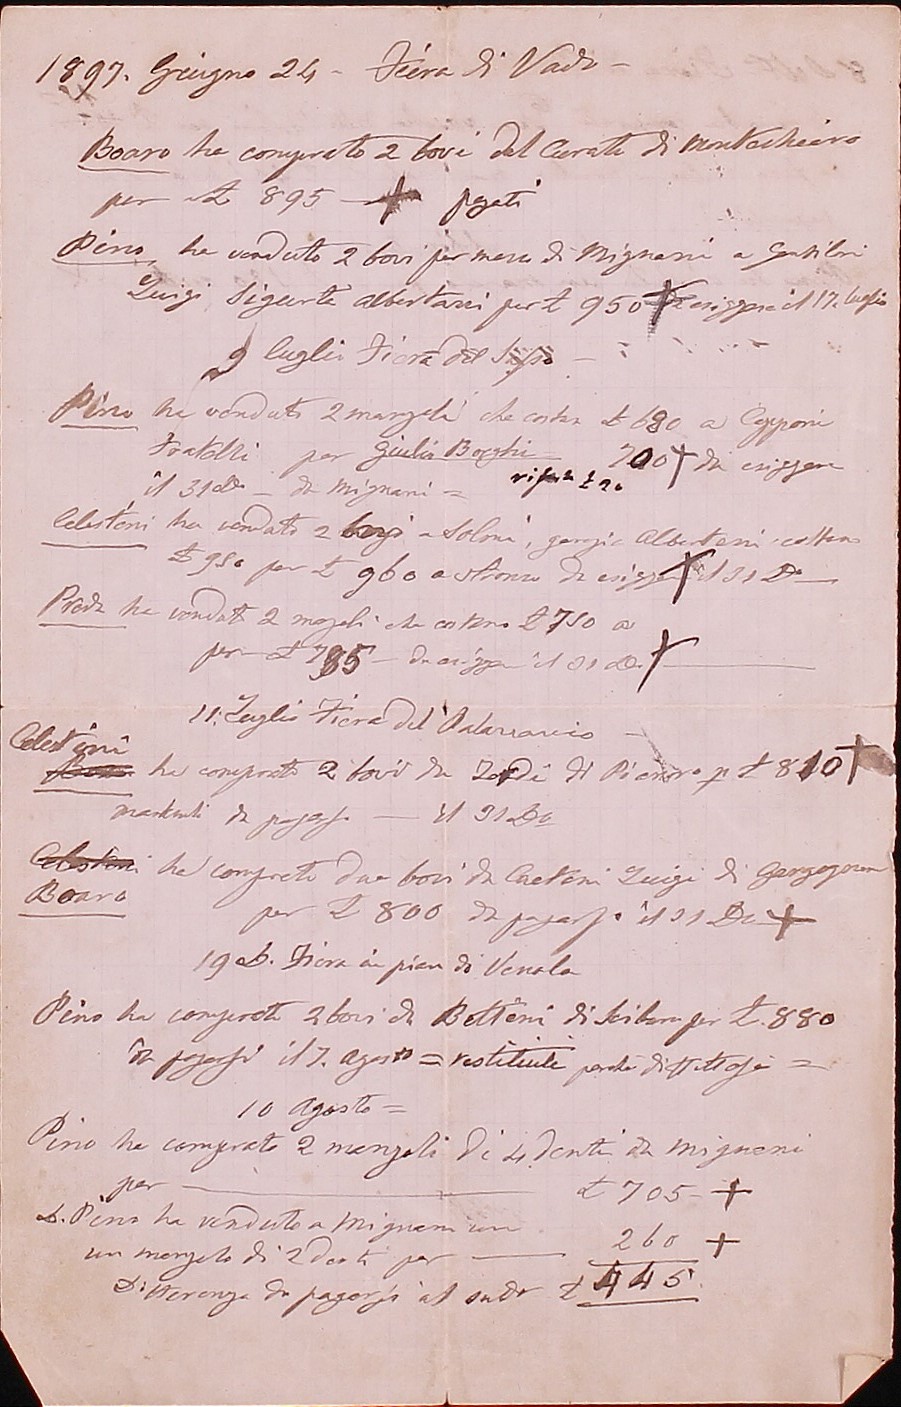 1897. Giugno 24 - Fiera di Vado -
Boaro ha comprato 2 bovi del Curato di Montechiaro
per £ 895 — pagati
Pino ha venduto 2 bovi per mezzo di Mignani a
Luigi Sigurtà Albertassi per £ 950 da esiggere il 17. luglio
9 luglio Fiera del Sasso -
Pino ha venduto 2 manzoli che costan £ 680 a Capponi
Fratelli per Giulio Borghi 700 da esiggere
il 31 do - da Mignani =
Celestini ha venduto 2 bovi a
£ 950 per £ 960 a da esigger il 31 Do
Preda ha venduto 2 manzoli che costano £ 750 a
per £ 785 - da esigger il 31 Do.
11. Luglio Fiera del
Celestini
ha comprato 2 bovi da di £ 810
da pagarsi — il 31 Do
Celestini ha comprato due bovi da Luigi di
Boaro
per £ 800 da pagarsi il 31 Do
19 d. Fiera in pian di Venola
Pino ha comprato 2 bovi da Bettini di per £. 880
da pagarsi il 7. Agosto = restituiti perchè difettosi =
10 Agosto =
Pino ha comprato 2 manzoli di 4 denti da Mignani
per — £ 705 -
D. Pino ha venduto a Mignani un
un manzolo di 2 denti per — 260
Differenza da pagarsi al sudo £ 445